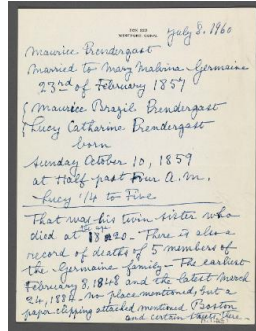 BOX 223
WESTPORT, CONN.
July 8, 1960
Maurice Prendergast
Married to Mary Malvina Germaine
23rd of February 1857
Maurice Brazil Prendergast
Lucy Catharine Prendergast
born
Sunday October 10, 1859
at Half past Four a.m.
Lucy 1/4 to Five
That was his twin sister who
died at the age 18 20 - There is also a
record of deaths of 5 members of
the Germaine family - The earliest
February 3, 1848 and the latest March
24, 1884 - no place mentioned, but a
paper clipping attached mentioned Boston
and certain